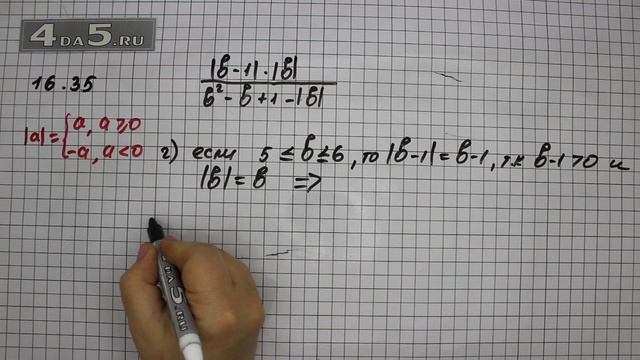 4DA5.RU
16.35
|b-1|·|b|
b²-b+1-|b|
|a|={a, a≥0
-a, a<0
г) если 5≤b≤6, то |b-1|=b-1, т.к b-1>0 и
|b|=b ⇒
4DA5.RU